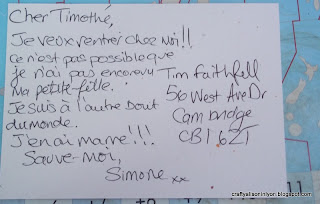 Cher Timothé,
Je veux rentrer chez Moi!!
ce n'est pas possible que
je n'ai pas encore vu
Ma petite-fille.
Je suis à l'autre bout
du monde.
J'en ai marre!!!
Sauve-Moi,
Simone xx
Tim Faithfull
56 West Ave Dr
Cambridge
CB1 6ZT
craftyalisoninlyon.blogspot.com